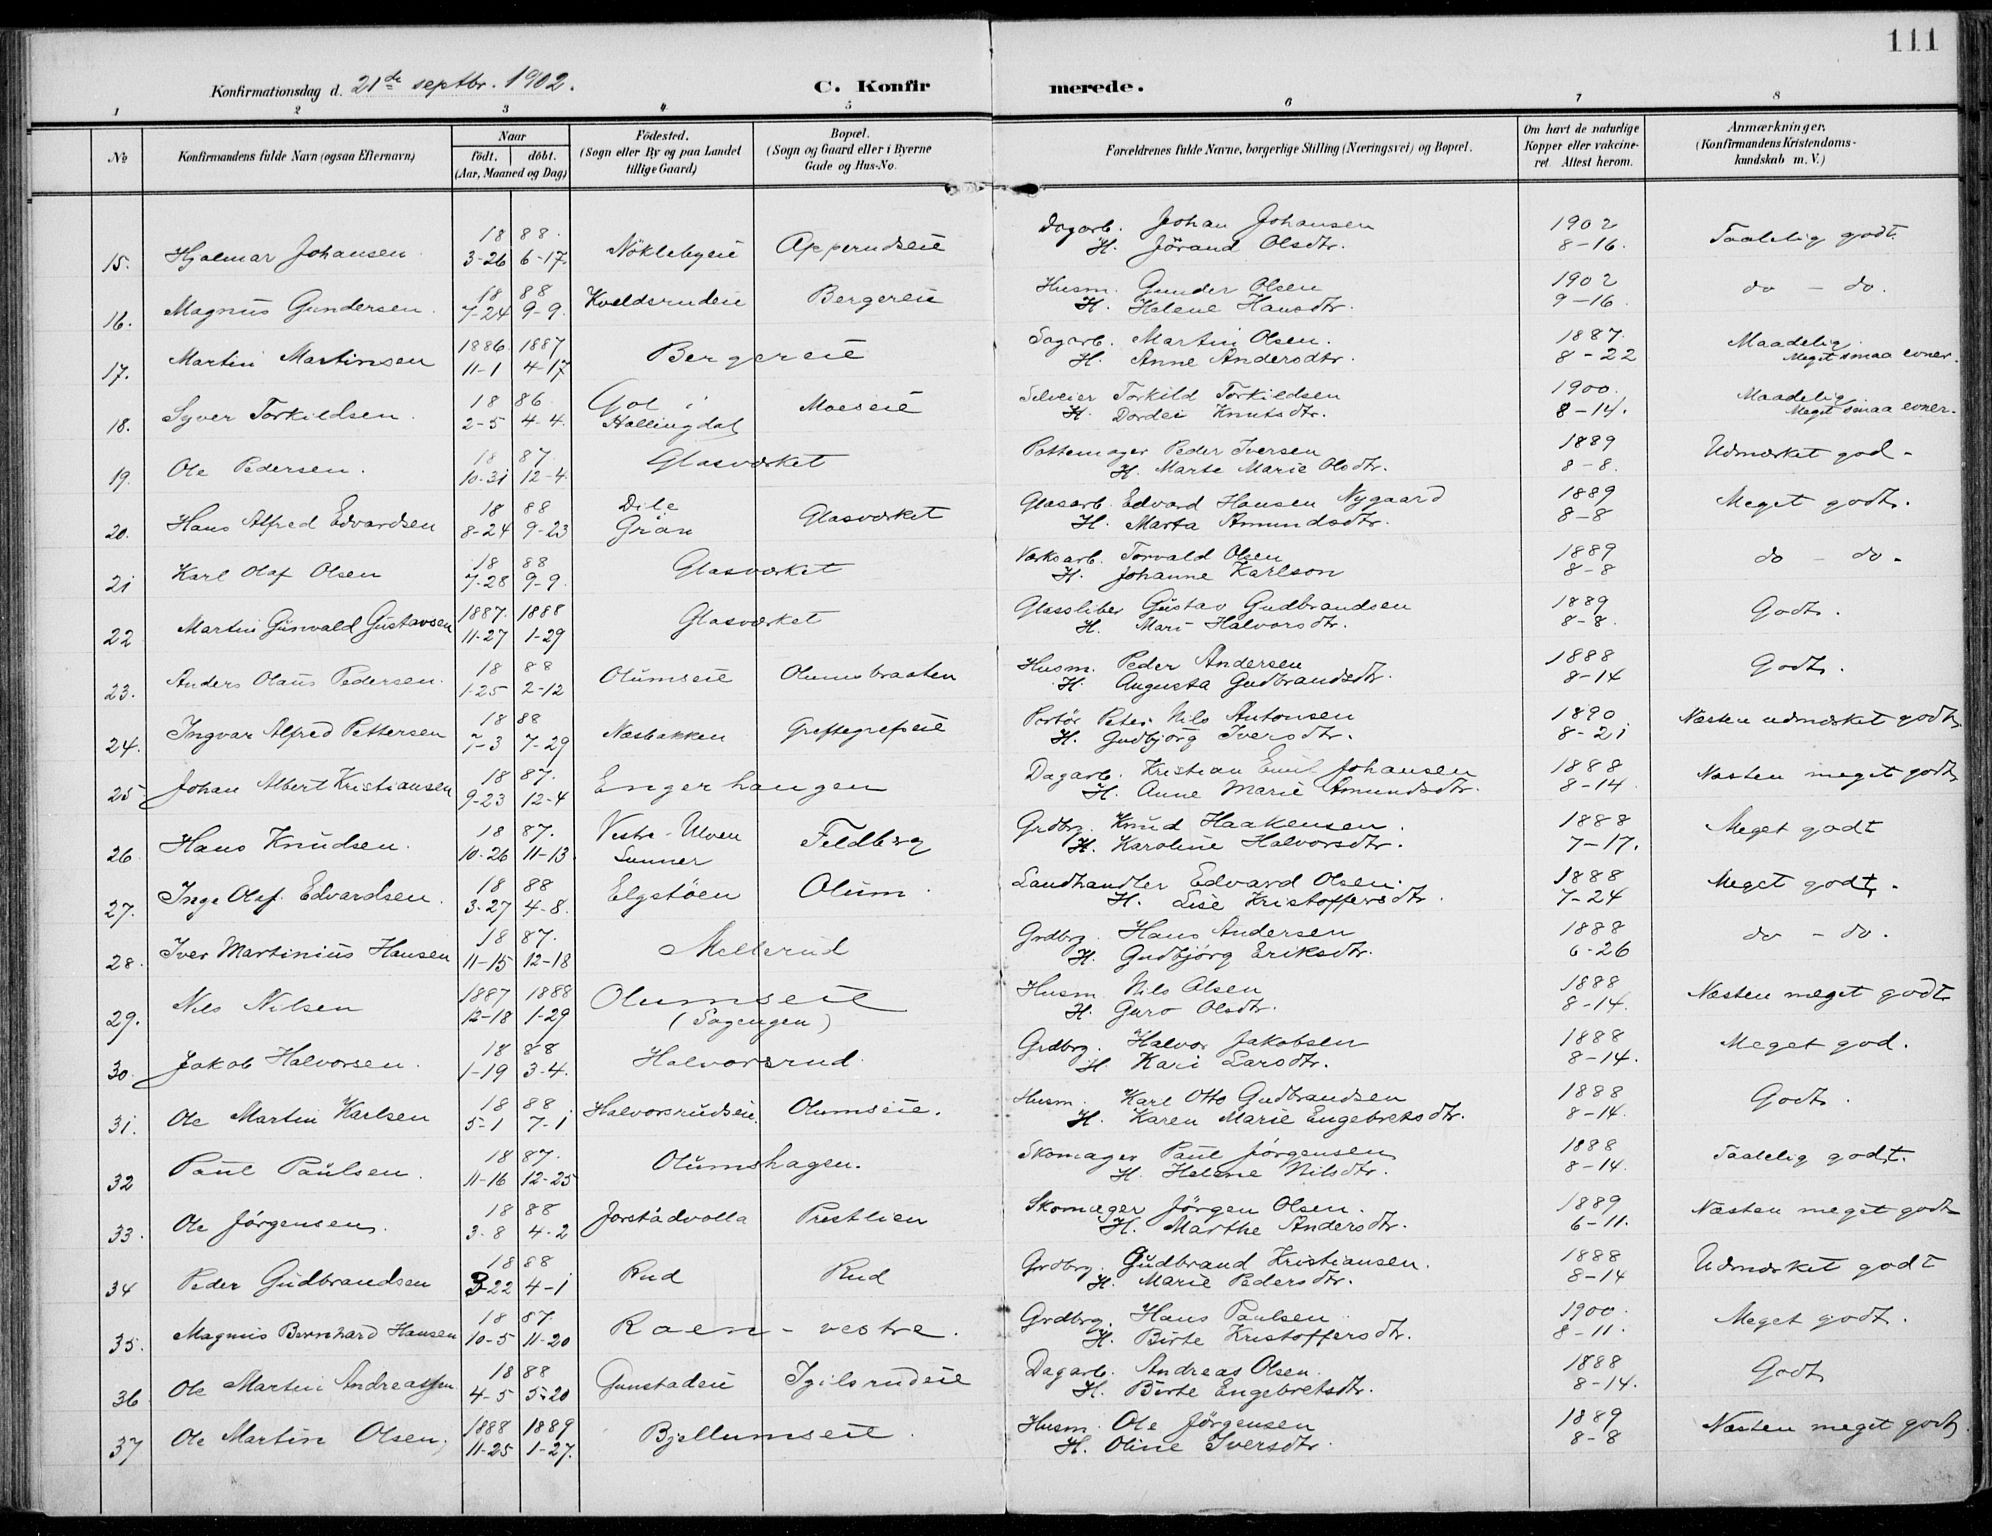 111
Konfirmationsdag d. 21de septbr. 1902.
C. Konfirmerede.
1 2 3 4 5 6 7 8
No
Konfirmandens fulde Navn (ogsaa Efternavn)
Naar
født. døbt.
(Aar, Maaned og Dag)
Fødested.
(Sogn eller By og paa Landet
tillige Gaard)
Bopæl.
(Sogn og Gaard eller i Byerne
Gade og Hus-No.
Forældrenes fulde Navne, borgerlige Stilling (Næringsvei) og Bopæl.
Om havt de naturlige
Kopper eller vakcine-
ret. Attest herom.
Anmærkninger.
(Konfirmandens Kristendoms-
kundskab m. V.)
18 88. Dagarb. Johan Johansen 1902
15. Hjalmar Johansen 3-26 6-17. Nöklebyeie Apperudseie H. Jörand Olsdtr. 8-16. Taalelig godt.
18 88 Husm. Gunder Olsen 1902
16. Magnus Gundersen. 7-24 9-9. Kveldsrudeie Bergereie H. Helene Hansdtr. 9-16. do - do.
1886. 1887 Sagarb. Martin Olsen. 1887. Maadelig.
17. Martin Martinsen 11-1 4-17 Bergereie H. Anne Andersdtr. 8-22 Meget smaa evner.
18 86. Gol i Torkild Torkildsen 1900. Maadelig.
18. Syver Torkildsen. 2-5 4-4. Hallingdal Moeseie H. Dordei Knutsdtr. 8-14. Meget smaa evner.
18 87. Pottemager Peder Iversen 1889
19. Ole Pedersen. 10-31 12-4. Glasværket H. Marte Marie Olsdtr. 8-8. Udmærket god-
18 88 Glasarb. Edvard Hansen Nygaard 1889
20. Hans Alfred Edvardsen 8-24 9-23 Gran Glasværket H. Marta Amundsdtr. 8-8 Meget godt.
18 88 Værksarb. Torvald Olsen 1889
21 Karl Olaf Olsen 7-28 9-9. Glasværket H. Johanne Karlson 8-8 do - do.
1887. 1888 Glassliber Gustav Gudbrandsen 1889
22 Martin Gunvald Gustavsen 11-27 1-29 Glasværket H. Mari Halvorsdtr. 8-8. Godt.
18 88 Husm. Peder Andersen 1888
23. Anders Olaus Pedersen. 1-25 2-12 Olumseie Olumsbraaten H. Augusta Gudbrandsdtr. 8-14 Godt.
18 88 Portör Peter Nils Antonsen 1890
24. Ingvar Alfred Pettersen 7-3 7-29 Næsbakken Greftegrefseie H. Gudbjörg Iversdtr. 8-21 Næsten udmærket godt
18 87. Dagarb. Kristian Emil Johansen 1888
25 Johan Albert Kristiansen 9-23 12-4 Engerhaugen H. Anne Marie Amundsdtr. 8-14. Næsten meget godt
18 87. Vestre-Ulven Grdbrg. Knud Haakensen. 1888
26 Hans Knudsen. 10-26 11-13 Lunner Feldberg H. Karoline Halvorsdtr. 7-17. Meget godt
18 88 Landhandler Edvard Olsen. 1888
27. Inge Olaf Edvardsen. 3-27 4-8. Elgstöen Olum. H. Lise Kristoffersdtr. 7-24 Meget godt.
18 87. Grdbrg. Hans Andersen 1888
28. Iver Martinius Hansen 11-15 12-18 Mellerud H. Gudbjörg Eriksdtr. 6-26 do - do.
1887 1888 Olumseie Husm. Nils Olsen 1888
29. Nils Nilsen 12-18 1-29 (Sagengen) H. Guro Olsdtr. 8-14. Næsten meget godt
18 88 Grdbrg. Halvor Jakobsen 1888
30. Jakob Halvorsen. 1-19 3-4. Halvorsrud. H. Kari Larsdtr. 8-14. Meget god.
18 88 Husm. Karl Otto Gudbrandsen 1888
31. Ole Martin Karlsen 5-1 7-1 Halvorsrudseie. Olumseie. H. Karen Marie Engebretsdtr. 8-14. Godt.
18 87. Skomager Paul Jørgensen 1888
32 Paul Paulsen. 11-16 12-25 Olumshagen. H. Helene Nilsdtr. 8-14. Taalelig godt.
18 88 Skomager Jörgen Olsen. 1889
33. Ole Jörgensen. 3-8 4-2 Jorstadvolla Prestlien H. Marthe Andersdtr. 6-11. Næsten meget godt
18 88 Grdbrg. Gudbrand Kristiansen. 1888
34 Peder Gudbrandsen 3-22 4-1 Rud Rud H. Marie Pedersdtr. 8-14 Udmærket godt
18 87. Grdbrg. Hans Paulsen 1900.
35. Magnus Bernhard Hansen 10-5 11-20 Raen-vestre. H. Birte Kristoffersdtr. 8-11. Meget godt.
18 88 Dagarb. Andreas Olsen. 1888
36 Ole Martin Andreassen 4-5 5-20 Gunstadeie Igilsrudeie H. Birte Engebretsdtr. 8-14. Godt
1888 1889 Husm. Ole Jörgensen 1889
37 Ole Martin Olsen. 11-25 1-27. Bjellumseie. H. Oline Iversdtr. 8-8 Næsten meget godt.